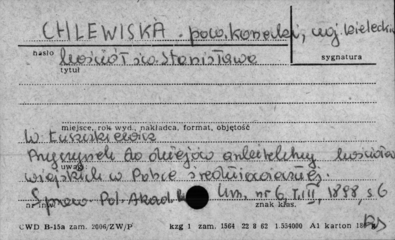 CHLEWISKA pow. konecki, woj. kieleckie
hasło Kościół św. Stanisława
sygnatura
tytuł
miejsce, rok wyd., nakładca, format, objętość
W. Łuszkiewicz
Przyczynek do dziejów architektury kościołów
uwagi
wiejskich w Polsce średniowiecznej.
Spraw. Pol. Akad. Um. nr 6, T. III, 1888, s 6
nr inw.
znak klas.
CWD B-15a zam. 2006/ZW/P kzg 1 zam. 1564 22 8 62 1.554000 A1 karton